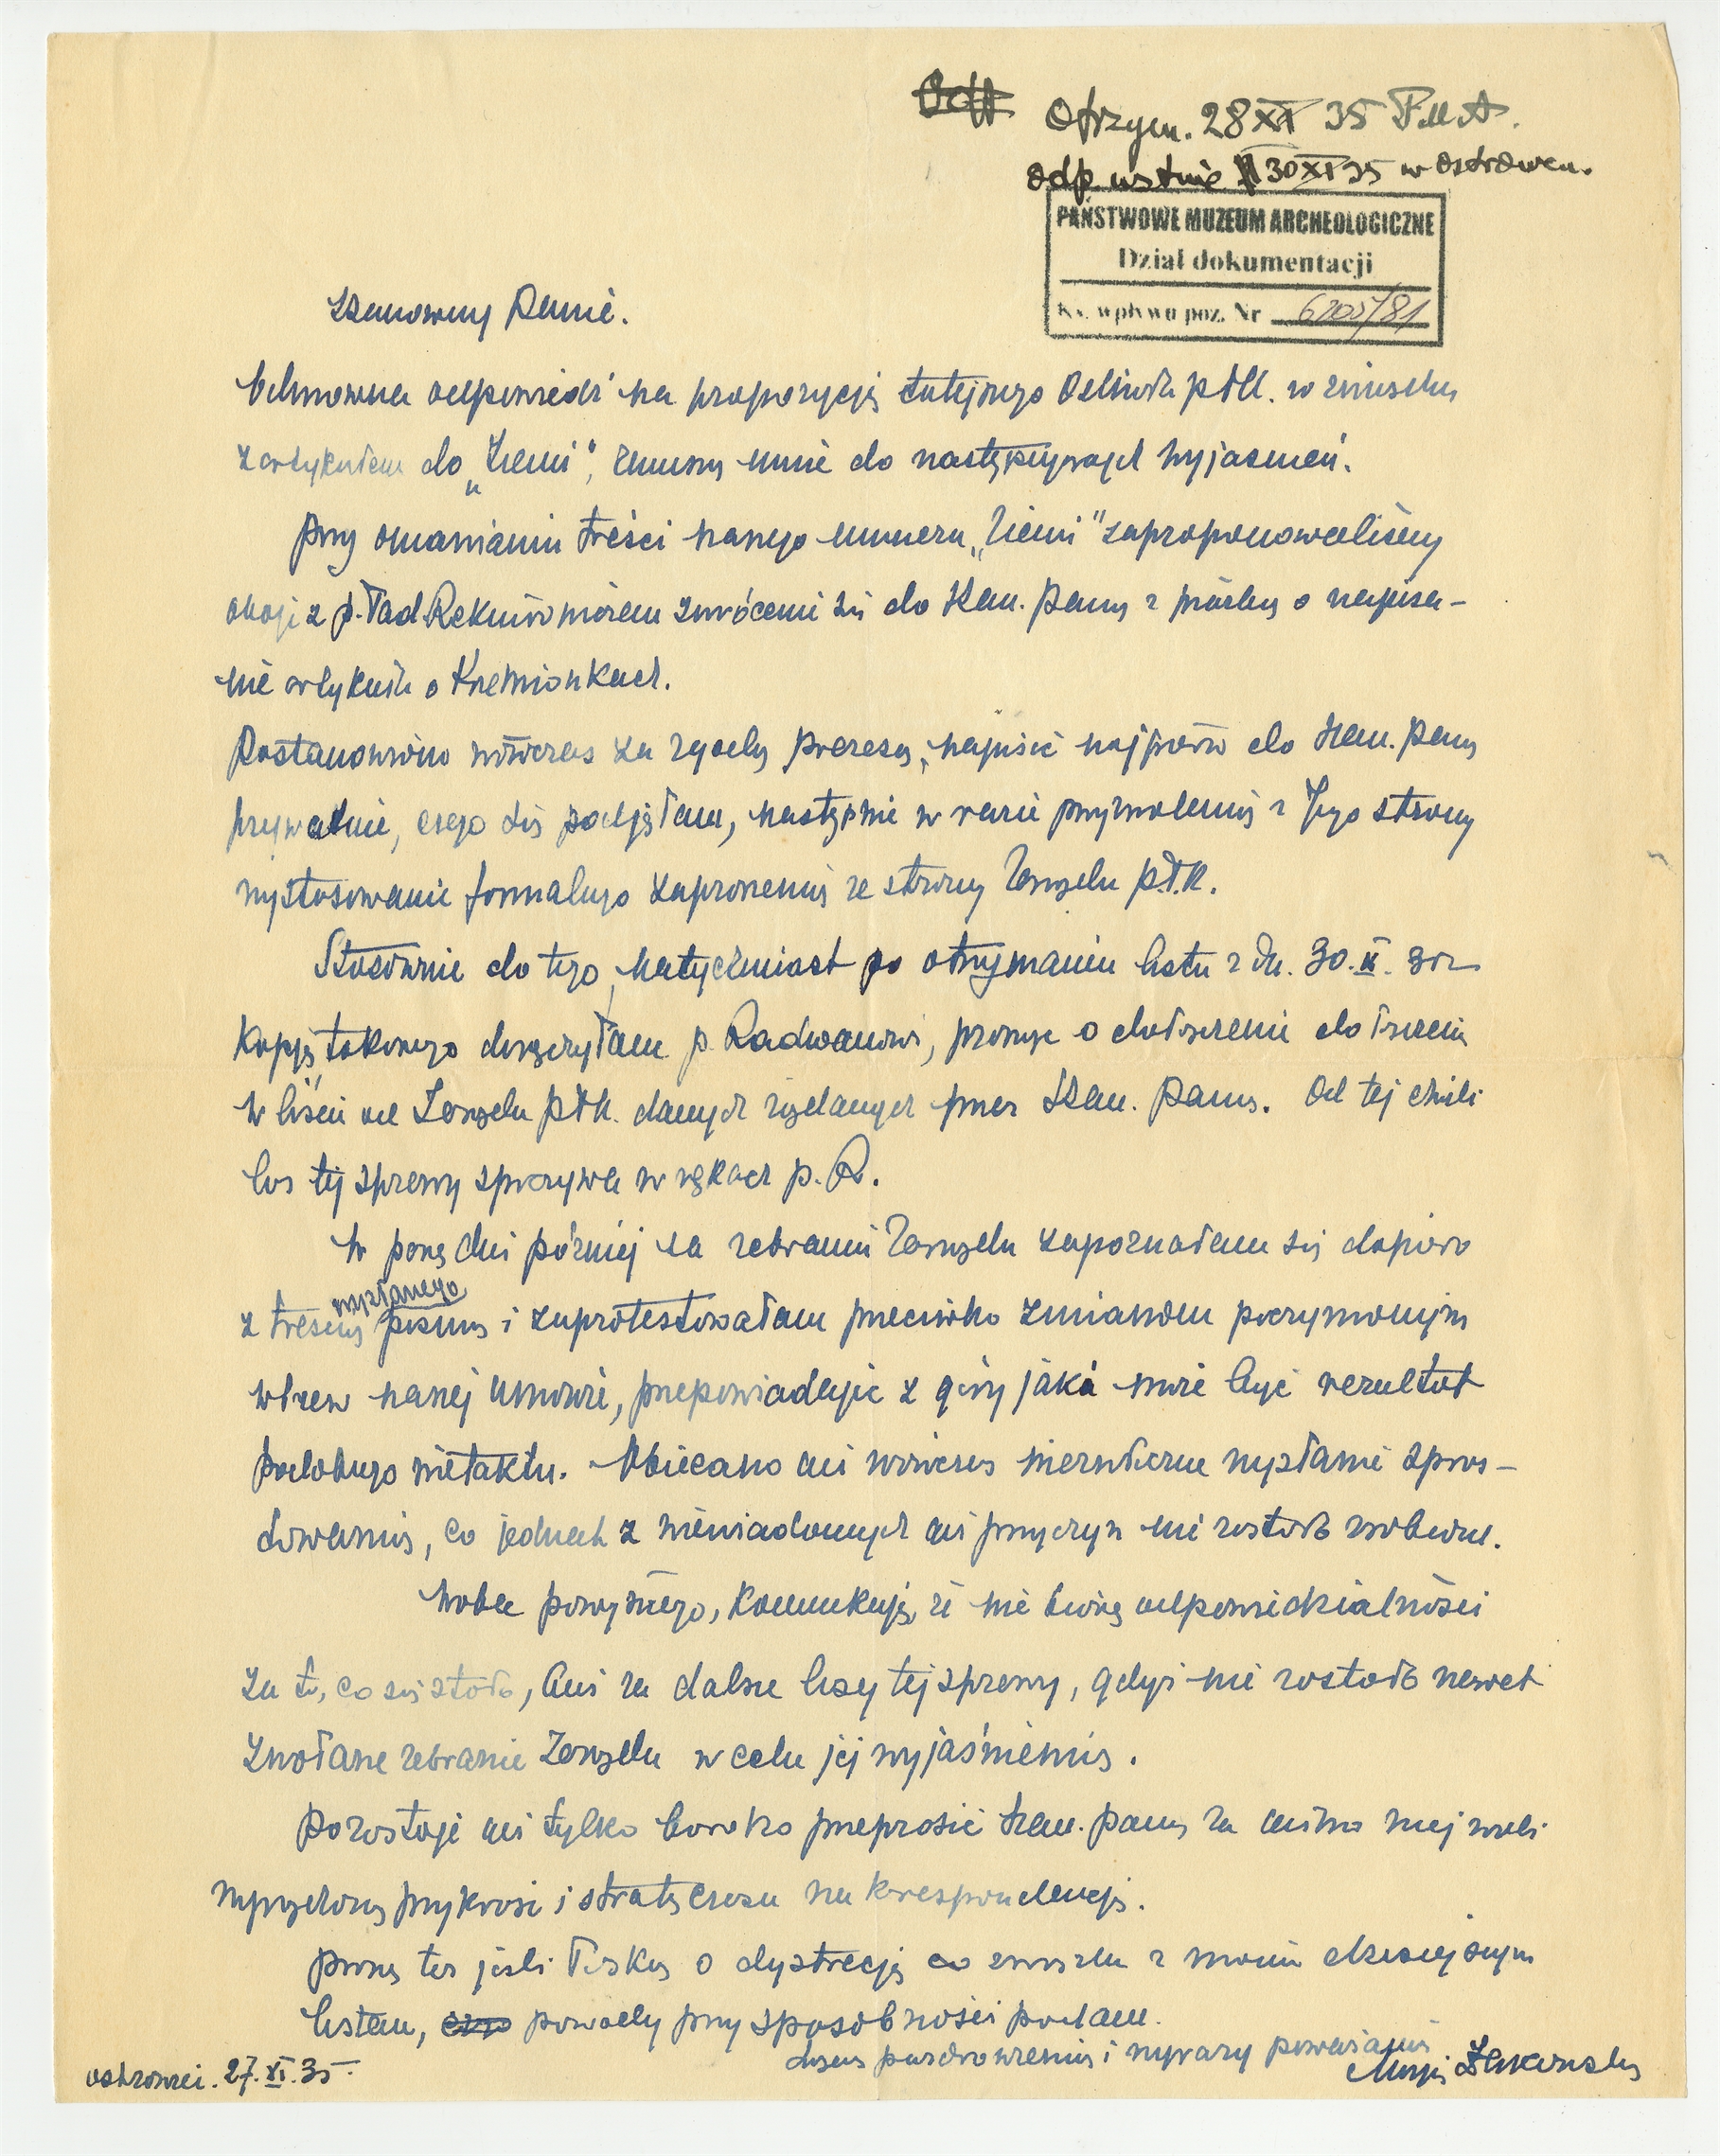 Otrzym. 28 XI 35 PMA.
odp. ustnie 30 XI 35 w Ostrowcu.
PAŃSTWOWE MUZEUM ARCHEOLOGICZNE
Dział dokumentacji
Ks. wpływu poz. Nr 6205/81
Szanowny Panie.
Odmowna odpowiedź na propozycję tutejszego Oddziału PTK. w związku
z artykułem do „Ziemi”, zmusza mnie do następujących wyjaśnień.
Przy omawianiu treści naszego numeru „Ziemi” zaproponowaliśmy
oboje z p. Tad Rekwirowiczem zwrócenie się do Szan. Pana z prośbą o napisa-
nie artykułu o Krzemionkach.
Postanowiono wówczas za zgodą prezesa, napisać najpierw do Szan. Pana
prywatnie, czego się podjęłam, następnie w razie przyzwolenia z Jego strony
wystosowanie formalnego zaproszenia ze strony Zarządu P.T.K.
Stosownie do tego, natychmiast po otrzymaniu listu z dn. 30.
Kopję takowego doręczyłam p. Radwanowi, prosząc o dołączenie
w liście od Zarządu PTK. danych żądanych przez Szan. Pana. Od tej chwili
los tej sprawy spoczywa w rękach p. R.
W parę dni później na zebraniu Zarządu zapoznałam się dopiero
z treścią wysłanego pisma i zaprotestowałam przeciwko zmianom poczynionym
wbrew naszej umowie, przepowiadając z góry jaki może być rezultat
podobnego nietaktu. Obiecano mi wówczas niezwłoczne wysłanie spros-
towania, co jednak z niewiadomych mi przyczyn nie zostało zrobione.
Wobec powyższego, komunikuję, że nie biorę odpowiedzialności
za to, co się stało, ani za dalsze losy tej sprawy, gdyż nie zostało nawet
zwołane zebranie Zarządu w celu jej wyjaśnienia.
Pozostaje mi tylko bardzo przeprosić Szan. Pana za mimo mej woli
wyrządzoną przykrość i stratę czasu na korespondencję.
Proszę też jeśli łaska o dyskrecję co związku z moim dzisiejszym
listem, powody przy sposobności podam.
Łączę pozdrowienia i wyrazy poważania
Ostrowiec. 27. XI. 35